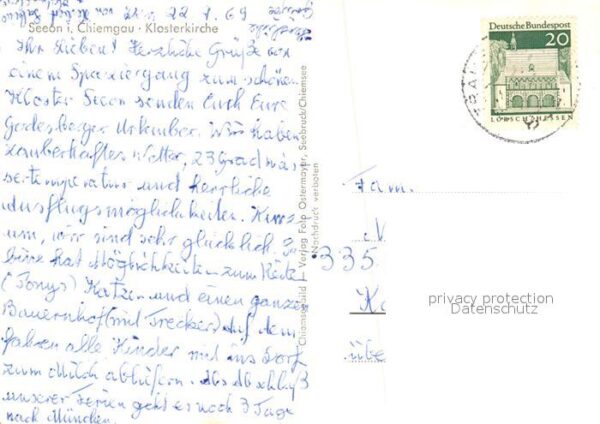 22. 7. 69
Seeon i. Chiemgau · Klosterkirche
Ihr Lieben! Herzliche Grüße von
einem Spaziergang zum schönen
Kloster Seeon senden Euch Eure
Godesberger Urlauber. Wir haben
zauberhaftes Wetter, 23 Grad Was-
sertemperatur und herrliche
Ausflugsmöglichkeiten. Kurz-
um, wir sind sehr glücklich.
hat Möglichkeiten zum Reiten
(Ponys) Katzen und einen ganzen
Bauernhof (mit Trecker) auf dem
fahren alle Kinder mit ins Dorf
zum Milch abliefern. Als Abschluß
unserer Ferien geht es noch 3 Tage
nach München.
Chiemseebild — Verlag Foto Ostermayer, Seebruck/Chiemsee
Nachdruck verboten
Deutsche Bundespost
20
LORSCH/HESSEN
Fam.
335
K
über
privacy protection
Datenschutz